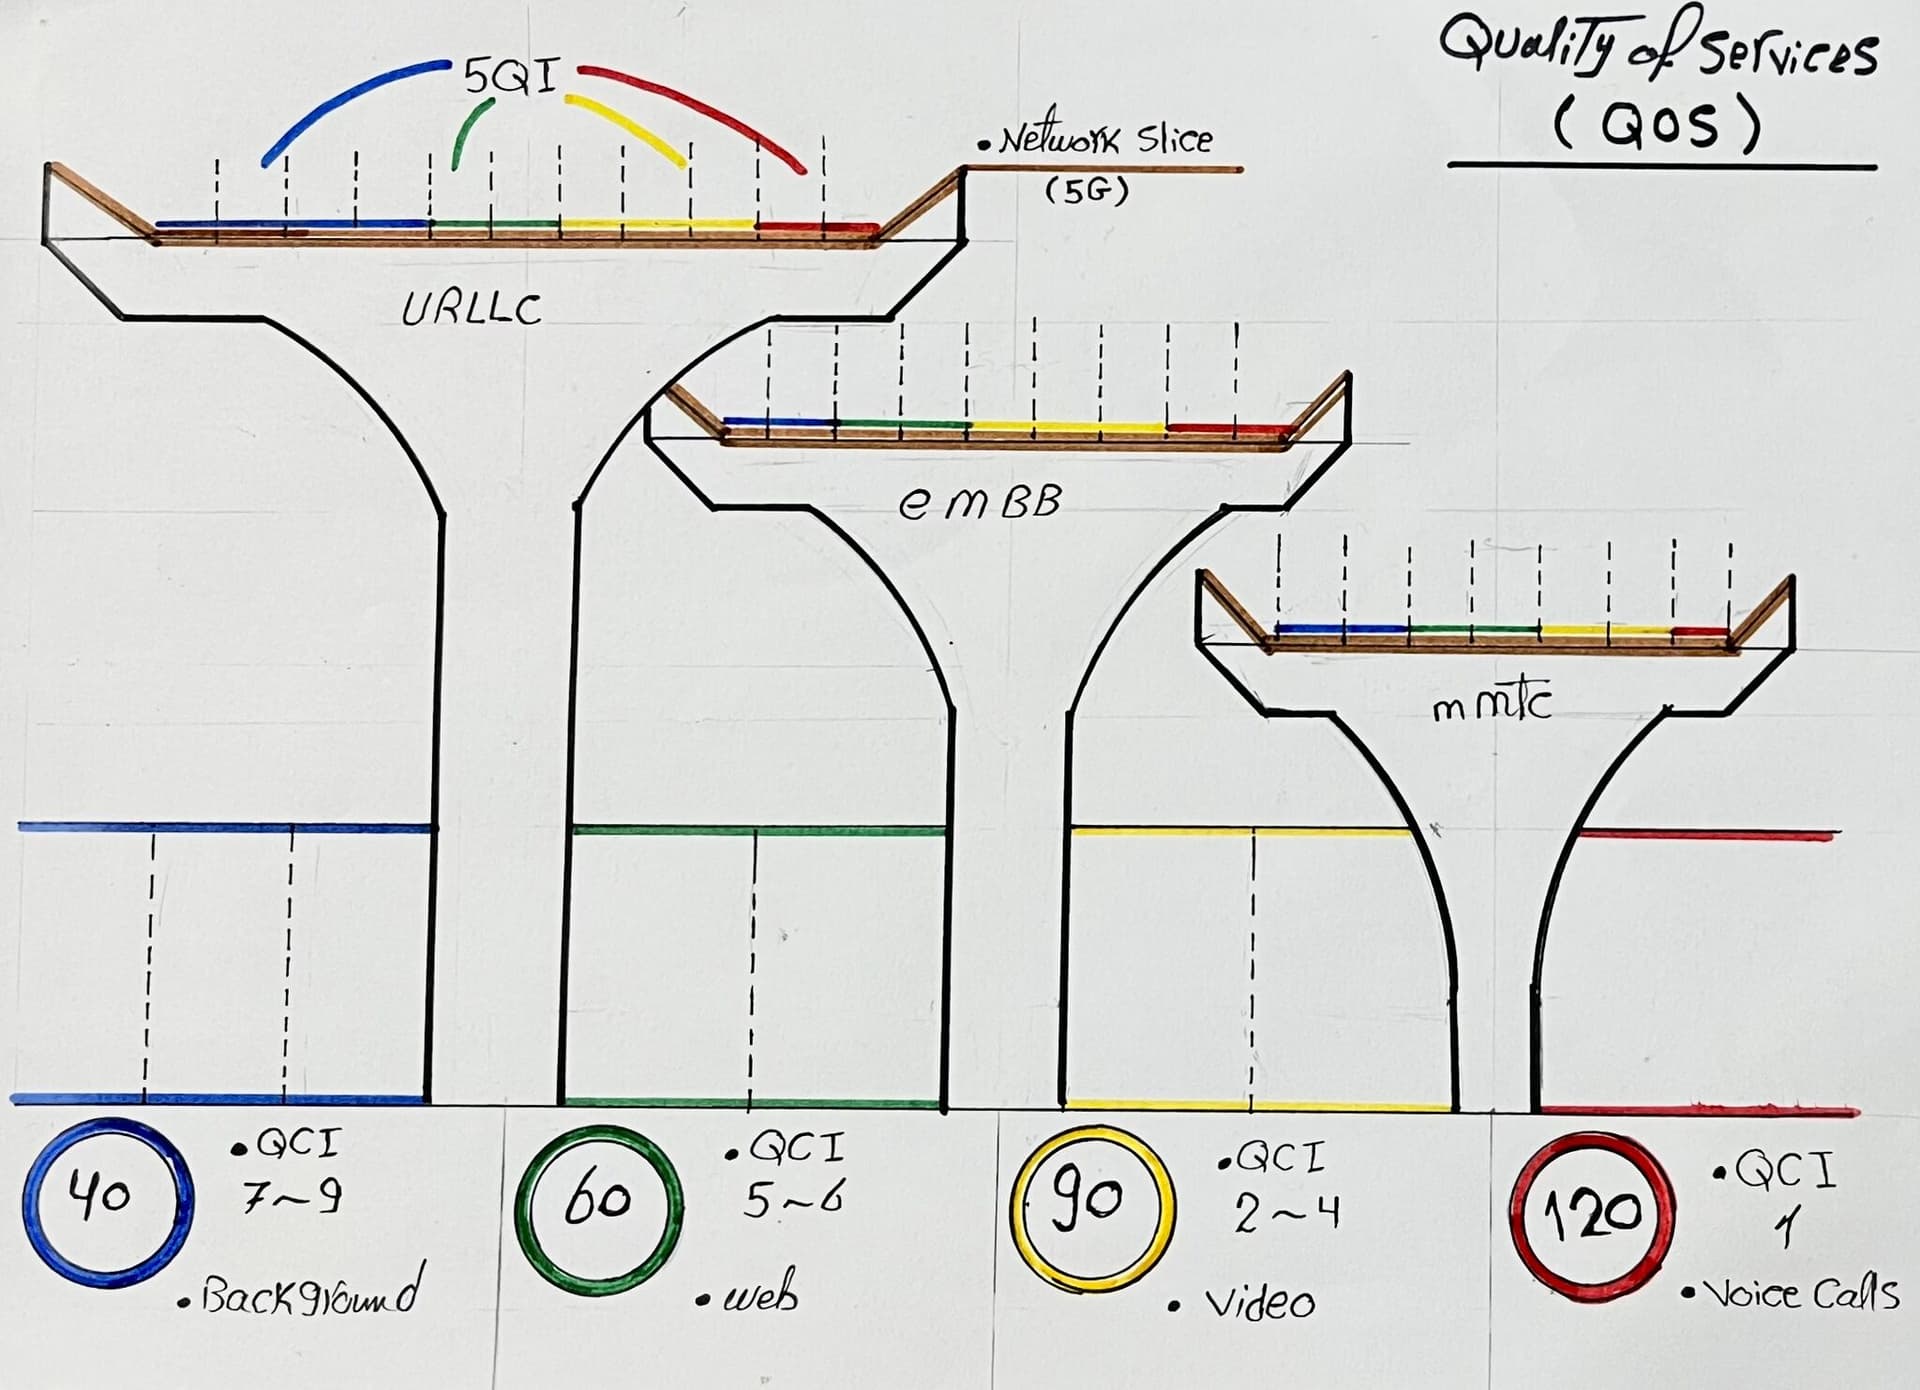 Quality of Services
(QOS)
5QI
• Network Slice
(5G)
URLLC
emBB
mmTc
40
• QCI
7~9
• Background
60
• QCI
5~6
• web
90
• QCI
2~4
• Video
120
• QCI
1
• Voice Calls